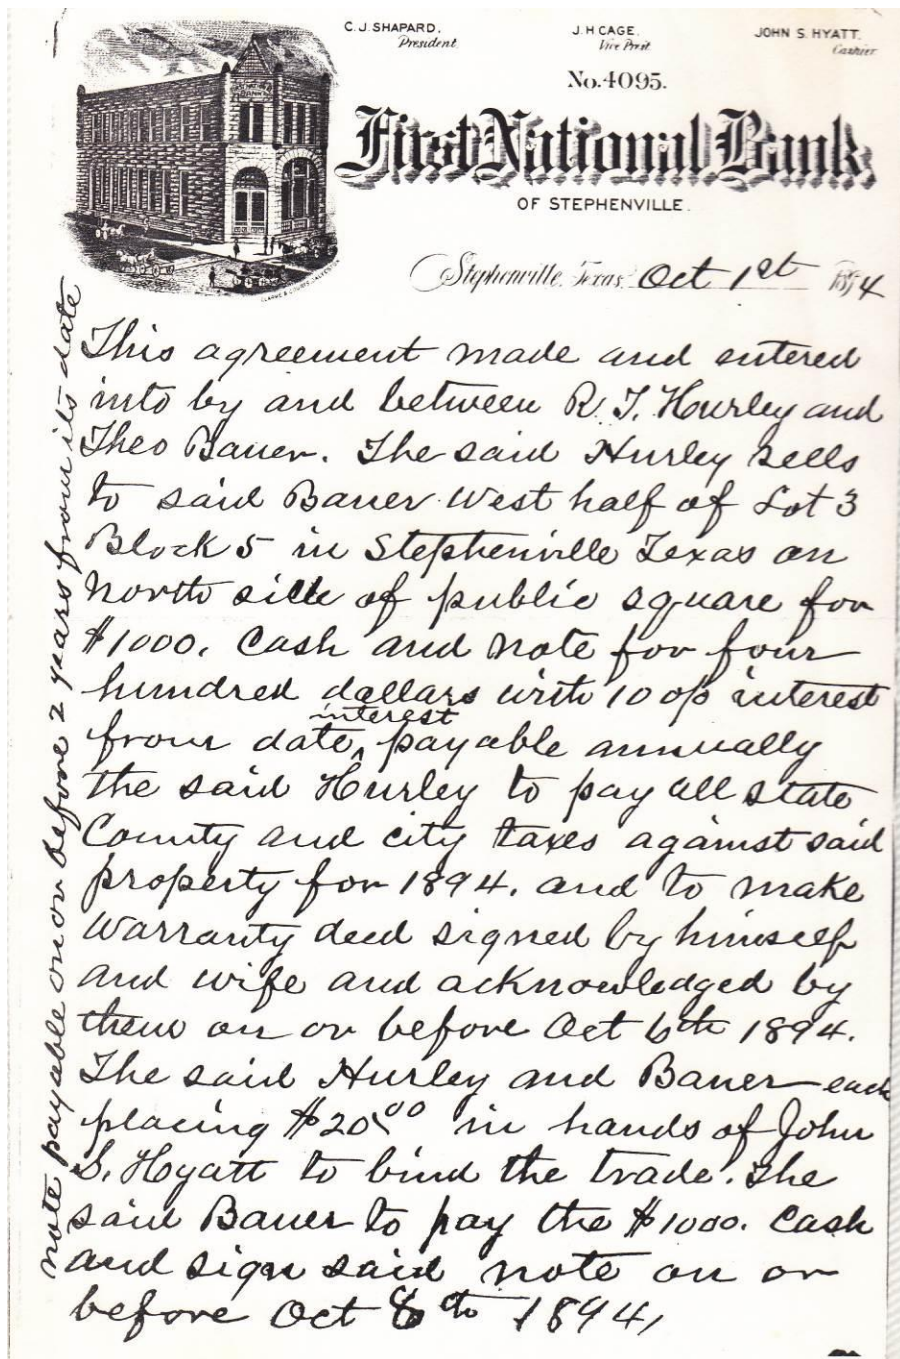 C. J. SHAPARD,
President.
J. H. CAGE,
Vice Prest.
JOHN S. HYATT,
Cashier.
No. 4095.
First National Bank
OF STEPHENVILLE.
Stephenville, Texas, Oct 1st 1894
This agreement made and entered
into by and between R. T. Hurley and
Theo Bauer. The said Hurley sells
to said Bauer West half of Lot 3
Block 5 in Stephenville Texas on
North side of public square for
$1000. Cash and note for four
hundred dollars with 10 o/o interest
from date, interest payable annually
the said Hurley to pay all state
County and city taxes against said
property for 1894. and to make
Warranty deed signed by himself
and wife and acknowledged by
them on or before Oct 6th 1894.
The said Hurley and Bauer each
placing $20.00 in hands of John
S. Hyatt to bind the trade. The
said Bauer to pay the $1000. Cash
and sign said note on or
before Oct 8th 1894,
note payable on or before 2 years from its date